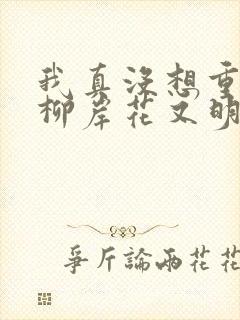 我真没想重
柳岸花又明
爭斤論兩花花